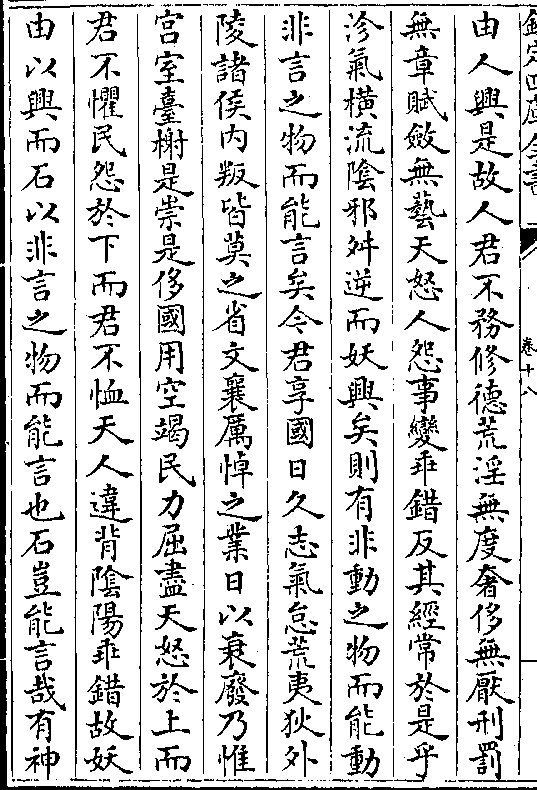 欽定四庫全書
卷十八
由人興是故人君不務修德荒淫無度奢侈無厭刑罰
無章賦斂無藝天怒人怨事變乖錯反其經常於是乎
沴氣橫流陰邪舛逆而妖興矣則有非動之物而能動
非言之物而能言矣今君享國日久志氣怠荒夷狄外
陵諸侯内叛皆莫之省文襄厲悼之業日以衰廢乃惟
宫室臺榭是崇是侈國用空竭民力屈盡天怒於上而
君不懼民怨於下而君不恤天人違背陰陽乖錯故妖
由以興而石以非言之物而能言也石豈能言哉有神